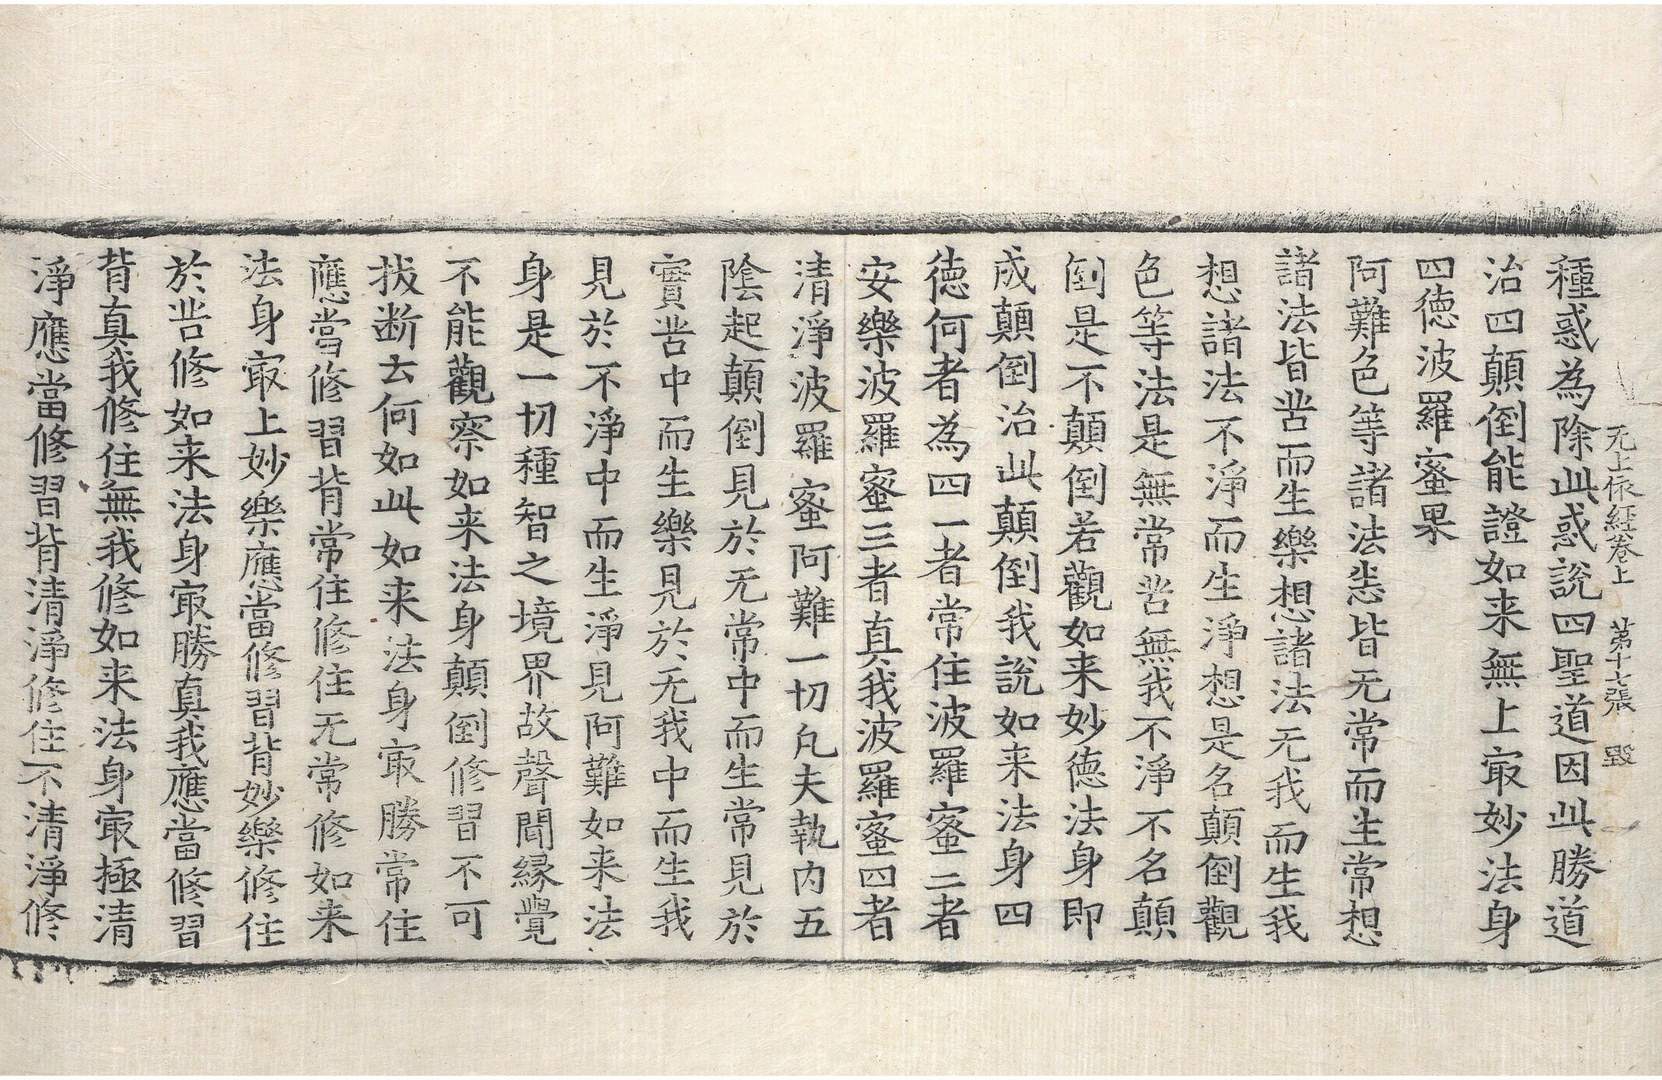 无上依経卷上　第十七張　毀
種惑為除此惑說四聖道因此勝道
治四顛倒能證如来無上㝡妙法身
四德波羅蜜果
阿難色等諸法恙皆无常而生常想
諸法皆苦而生樂想諸法无我而生我
想諸法不淨而生淨想是名顛倒觀
色等法是無常苦無我不淨不名顛
倒是不顛倒若觀如来妙德法身即
成顛倒治此顛倒我說如来法身四
德何者為四一者常住波羅蜜二者
安樂波羅蜜三者真我波羅蜜四者
清淨波羅蜜阿難一切凡夫執内五
陰起顛倒見於无常中而生常見於
實苦中而生樂見於无我中而生我
見於不淨中而生淨見阿難如来法
身是一切種智之境界故聲聞縁覺
不能觀察如来法身顛倒修習不可
拔断云何如此如来法身㝡勝常住
應當修習背常住修住无常修如来
法身㝡上妙樂應當修習背妙樂修住
於苦修如来法身㝡勝真我應當修習
背真我修住無我修如来法身㝡極清
淨應當修習背清淨修住不清淨修